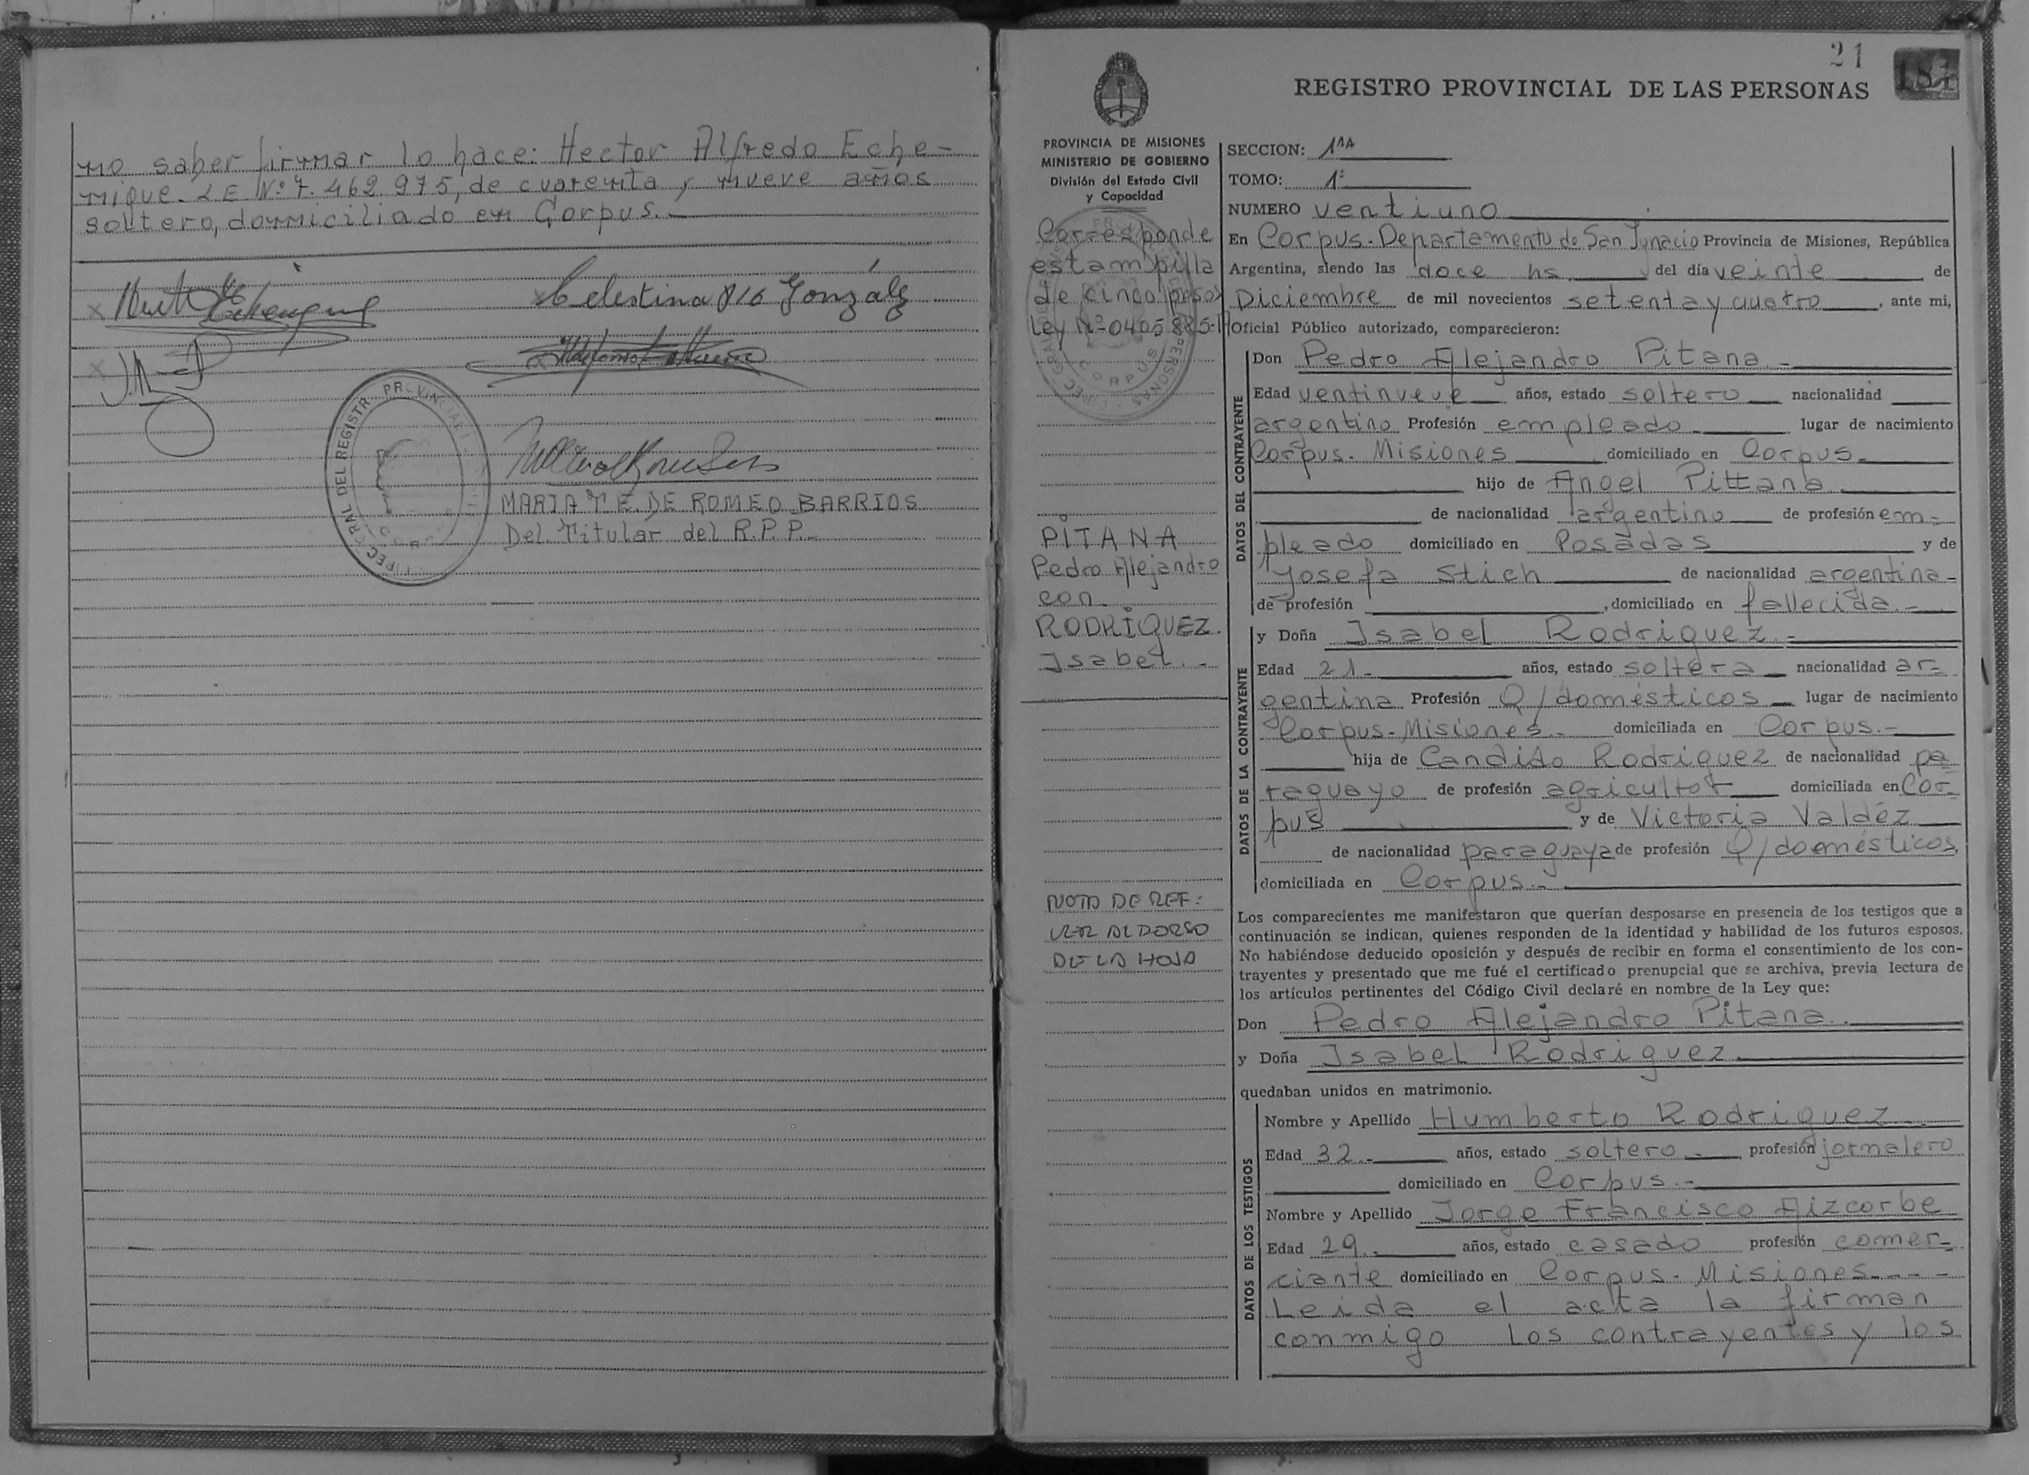 no saber firmar lo hace: Hector Alfredo Eche-
nique. L.E. Nº 7.462.975, de cuarenta y nueve años
soltero, domiciliado en Corpus.-
Celestina González
MARIA T E. DE ROMEO BARRIOS
Del. Titular del R.P.P.-
21
181
REGISTRO PROVINCIAL DE LAS PERSONAS
PROVINCIA DE MISIONES
MINISTERIO DE GOBIERNO
División del Estado Civil
y Capacidad
Corresponde
estampilla
de cinco pesos
Ley Nº 0405885-
PITANA
Pedro Alejandro
con
RODRIGUEZ.
Isabel.-
NOTA DE REF:
VER AL DORSO
DE LA HOJA
SECCION: 1ra
TOMO: 1º
NUMERO ventiuno
En Corpus-Departamento de San Ignacio Provincia de Misiones, República
Argentina, siendo las doce hs del día veinte de
Diciembre de mil novecientos setenta y cuatro, ante mi,
Oficial Público autorizado, comparecieron:
DATOS DEL CONTRAYENTE
Don Pedro Alejandro Pitana.-
Edad ventinueve años, estado soltero nacionalidad
argentino Profesión empleado. lugar de nacimiento
Corpus. Misiones domiciliado en Corpus.
hijo de Angel Pittana
de nacionalidad argentino de profesión em-
pleado domiciliado en Posadas y de
Josefa Stich de nacionalidad argentina-
de profesión , domiciliado en fallecida.-
DATOS DE LA CONTRAYENTE
y Doña Isabel Rodriguez.-
Edad 21.- años, estado soltera nacionalidad ar-
gentina Profesión Q/domésticos lugar de nacimiento
Corpus-Misiones.- domiciliada en Corpus.-
hija de Candido Rodriguez de nacionalidad pa
raguayo de profesión agricultor domiciliada en Cor-
pus y de Victoria Valdéz
de nacionalidad paraguaya de profesión Q/doemésticos,
domiciliada en Corpus.-
Los comparecientes me manifestaron que querían desposarse en presencia de los testigos que a
continuación se indican, quienes responden de la identidad y habilidad de los futuros esposos.
No habiéndose deducido oposición y después de recibir en forma el consentimiento de los con-
trayentes y presentado que me fué el certificado prenupcial que se archiva, previa lectura de
los artículos pertinentes del Código Civil declaré en nombre de la Ley que:
Don Pedro Alejandro Pitana.
y Doña Isabel Rodriguez.
quedaban unidos en matrimonio.
DATOS DE LOS TESTIGOS
Nombre y Apellido Humberto Rodriguez
Edad 32.- años, estado soltero.- profesión jornalero
domiciliado en Corpus.-
Nombre y Apellido Jorge Francisco Aizcorbe
Edad 29. años, estado casado profesión comer-
ciante domiciliado en Corpus. Misiones.----
Leida el acta la firman
conmigo los contrayentes y los